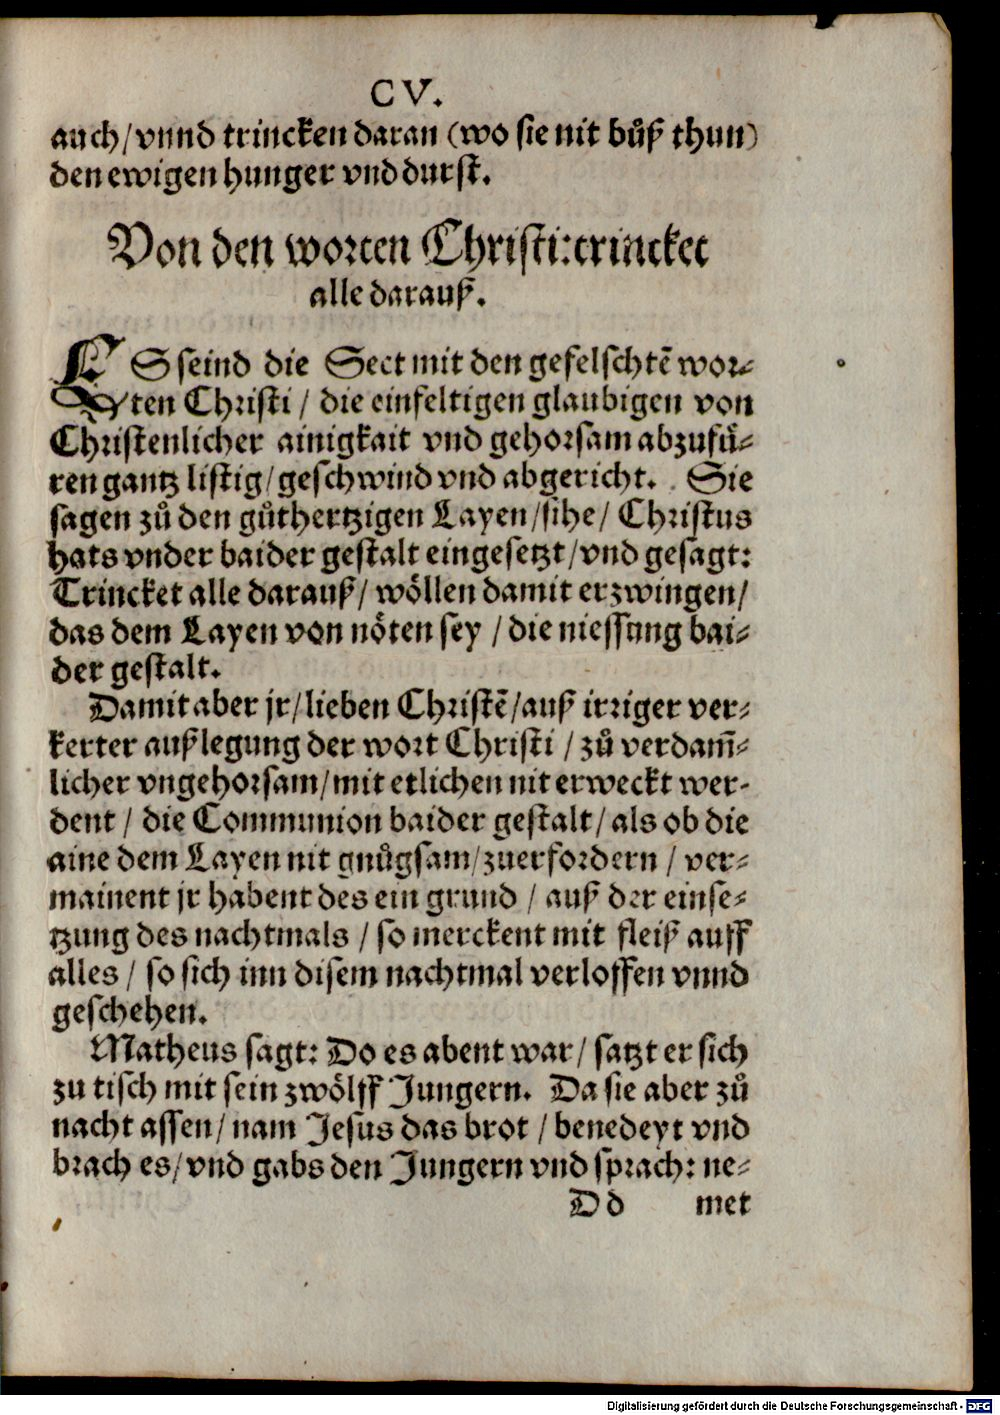 CV.
auch/ vnnd trincken daran (wo sie nit bůß thun)
den ewigen hunger vnd durst.
Von den worten Christi: trincket
alle darauß.
ES seind die Sect mit den gefelschtẽ wor⸗
ten Christi / die einfeltigen glaubigen von
Christenlicher ainigkait vnd gehorsam abzufü⸗
ren gantz listig/ geschwind vnd abgericht. Sie
sagen zů den gůthertzigen Layen/ sihe/ Christus
hats vnder baider gestalt eingesetzt/ vnd gesagt:
Trincket alle darauß/ wöllen damit erzwingen/
das dem Layen von nöten sey / die niessung bai⸗
der gestalt.
Damit aber jr/ lieben Christẽ/ auß irriger ver⸗
kerter außlegung der wort Christi / zů verdam̃⸗
licher vngehorsam/ mit etlichen nit erweckt wer-
dent / die Communion baider gestalt/ als ob die
aine dem Layen nit gnůgsam/ zuerfordern / ver⸗
mainent jr habent des ein grund / auß der einse⸗
tzung des nachtmals / so merckent mit fleiß auff
alles / so sich inn disem nachtmal verloffen vnnd
geschehen.
Matheus sagt: Do es abent war/ satzt er sich
zu tisch mit sein zwölff Jungern. Da sie aber zů
nacht assen/ nam Jesus das brot / benedeyt vnd
brach es/ vnd gabs den Jungern vnd sprach: ne⸗
Dd met
Digitalisierung gefördert durch die Deutsche Forschungsgemeinschaft - DFG